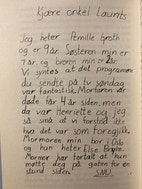 Kjære onkel Laurits
Jeg heter Pernille Groth
og er 9 år. Søsteren min er
7 år, og broren min er 2 år.
Vi syntes at det programmet
du sendte på tv søndag
var fantastisk. Morfaren vår
døde for 4 år siden, men
da var Henriette og jeg
så små at vi forstod ikke
hva det var som foregikk.
Mormoren min bor i Oslo
og hun heter Else
Mormor har fortalt at hun
møtte deg på gaten for en
stund siden. SNU